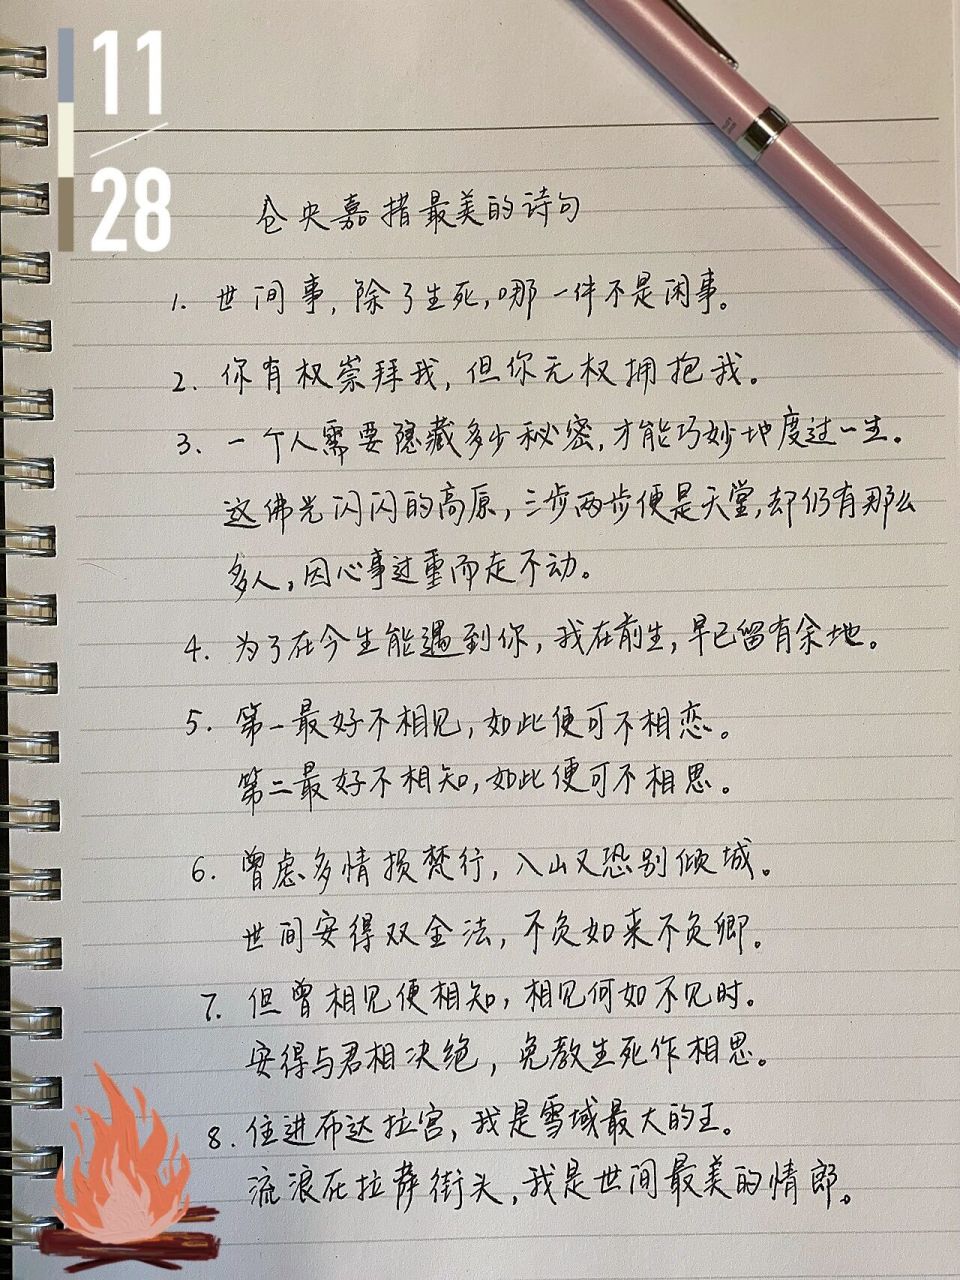 11
28
仓央嘉措最美的诗句
1. 世间事,除了生死,哪一件不是闲事。
2. 你有权崇拜我,但你无权拥抱我。
3. 一个人需要隐藏多少秘密,才能巧妙地度过一生。
这佛光闪闪的高原,三步两步便是天堂,却仍有那么
多人,因心事过重而走不动。
4. 为了在今生能遇到你,我在前生,早已留有余地。
5. 第一最好不相见,如此便可不相恋。
第二最好不相知,如此便可不相思。
6. 曾虑多情损梵行,入山又恐别倾城。
世间安得双全法,不负如来不负卿。
7. 但曾相见便相知,相见何如不见时。
安得与君相决绝,免教生死作相思。
8. 住进布达拉宫,我是雪域最大的王。
流浪在拉萨街头,我是世间最美的情郎。